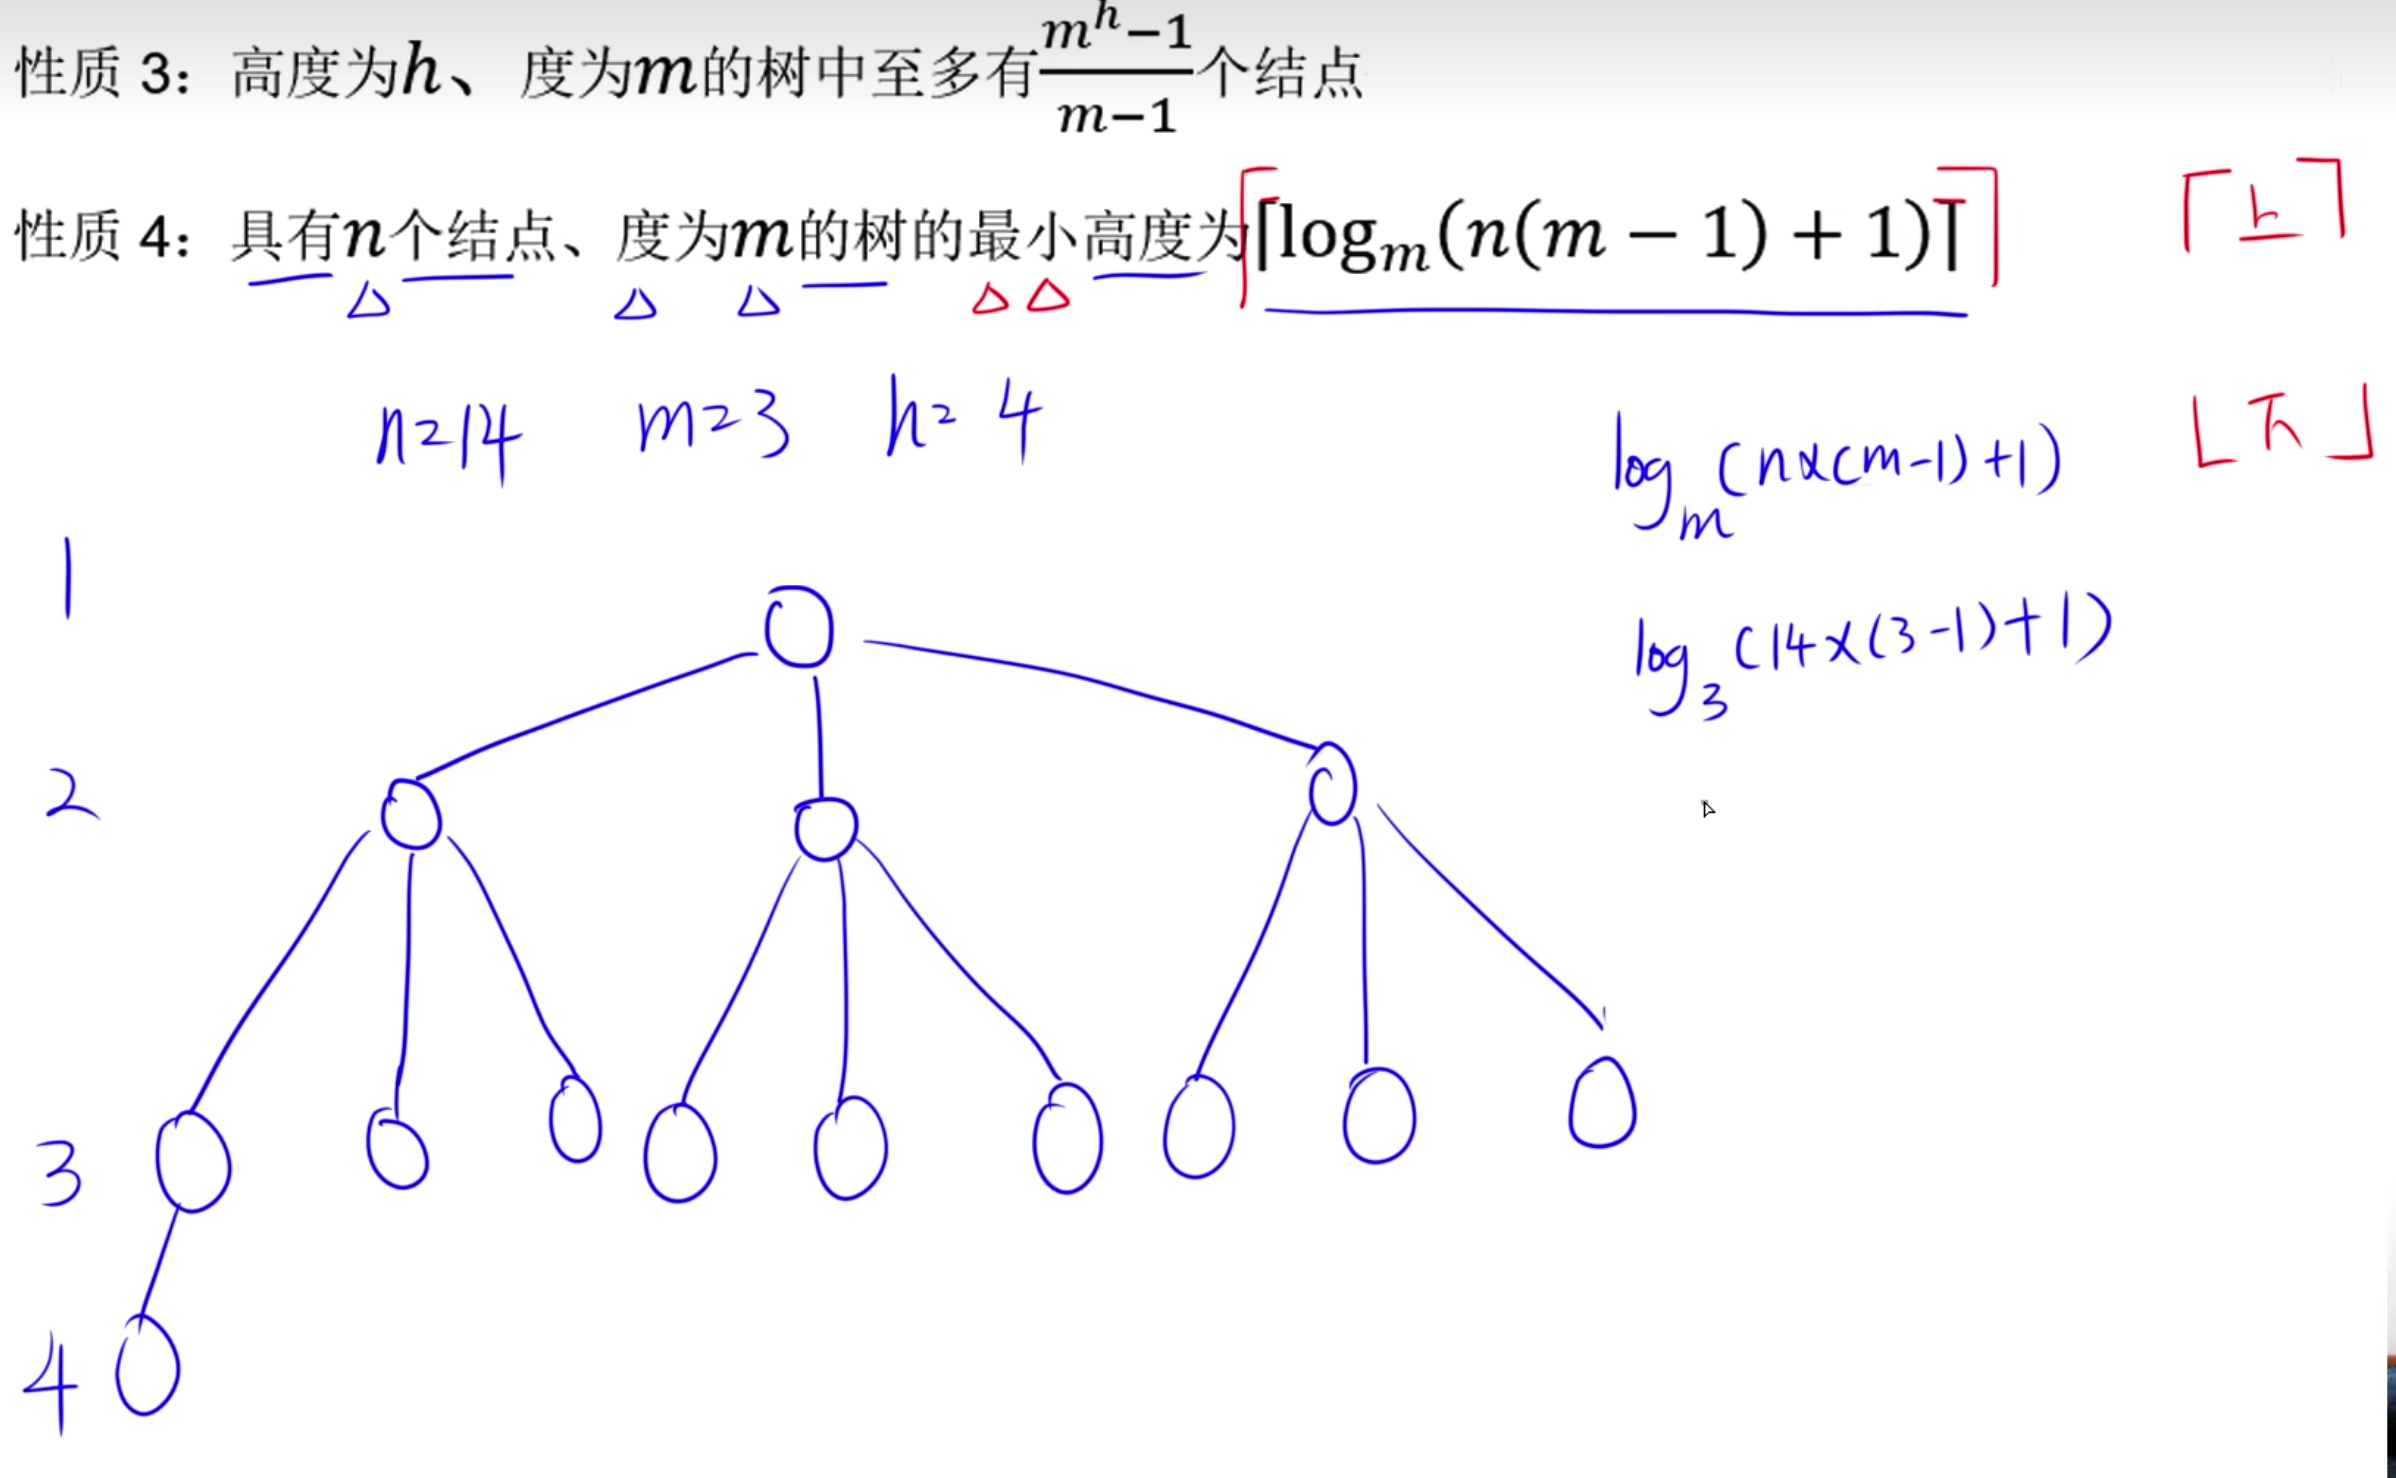 性质 3：高度为h、度为m的树中至多有\frac{m^h-1}{m-1}个结点
性质 4：具有n个结点、度为m的树的最小高度为⌈log_m(n(m − 1) + 1)⌉
⌈h⌉
n=14 m=3 h=4
⌊h⌋
log_m(n×(m-1)+1)
log_3(14×(3-1)+1)
1
2
3
4